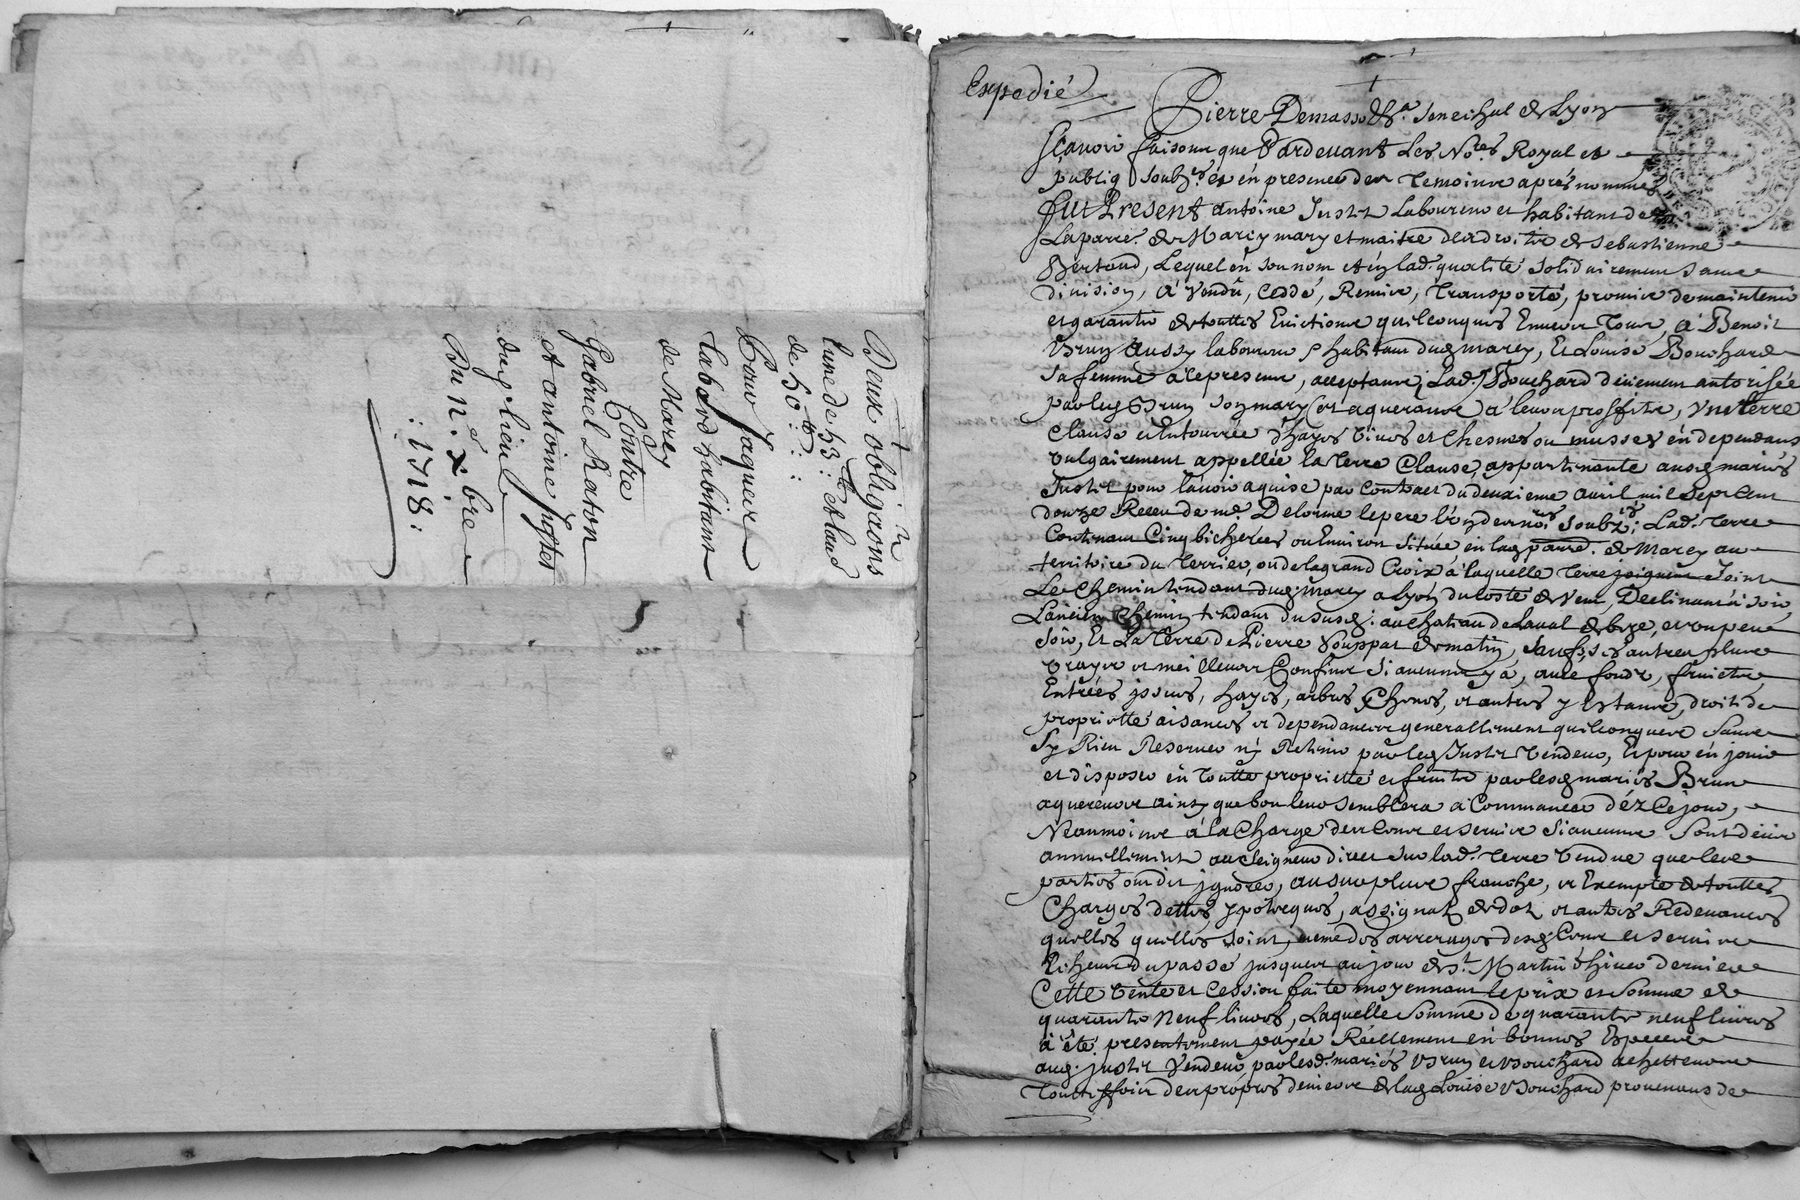 Deux obligaons
lune de 53: ℔ et lautre
de 50 ℔:
Pour Jaques
Labord habitant
de Marcy
Contre
Gabriel Raton
et antoine Justet
dud lieu
Du n.e xbre
: 1718 :
Expedié
Pierre Demasso &a. Senechal de Lyon
Sçavoir faisons que Pardevant Les No.res Royal et
publiq Soubz.nés et en presence des temoins après nommés
fut Present antoine Justet Laboureur et habitant de
La parre. de Marcy mary et maitre des droits de Sebastienne
Bertaud, Lequel en son nom et en lad. qualité solidairement sans
division, à vendu, Ceddé, Remis, transporté, promis de maintenir
et garantir de touttes Evictions quelconques Envers tous, à Benoit
Brun aussy laboureur habitant dud marcy, et Louise Bouchard
sa femme à ce presens, acceptans, Lad. Bouchard deüement autorisée
par led Brun son mary et aquereurs à leurs proffits, une terre
Clause et Entourrée d'hayes vives et Chesnes ou musses en dependans
vulgairement appellée la terre Clause, appartenante ausd mariés
Justet pour l'avoir aquise par Contract du deuxieme avril mil sept Cent
douze Receu de me. Delorme le pere l'un des no.res Soubz.nés; Lad. terre
Contenant Cinq bicherées ou Environ située en lad parre. de Marcy au
territoire du terrier, ou de la grand Croix à laquelle terre joignent Joint
Le Chemin tendant dud. marcy a Lyon du costé de vent, Declinant à soir
L'ancien Chemin tendant du susd. au chateau de Laval de bize, et un peu
soir, Et La terre de Pierre Souppat de matin, Sauf ses autres plus
vrayes et meilleurs Confins si aucuns y a, avec fonds, fruicts,
Entrées issues, hayes, arbres Chenes, et autres y Estans, droits de
proprietté aisances et dependances generallement quelconques Sans
S'y Rien Reserver ny Retenir par led Justet vendeur, Et pour en jouir
et disposer en toutte proprietté et fruits par lesd mariés Brun
aquereurs ainsy que bon leur semblera a Commancer déz Ce jour,
Neanmoins à la Charge des Cens et servis si aucuns sont deus
annuellement au Seigneur direct sur lad. terre vendue que les
parties ont dit ignorer, au surplus franche, et Exempte de touttes
Charges dettes ypoteques, assignat de dot et autres Redevances
quelles quelles soint, meme des arrerages desd. Cens et servis
Echeus du passé jusques au jour de St. Martin d'hiver dernier
Cette vente et Cession faite moyennant le prix et somme de
quarante neuf livres, Laquelle somme de quarante neuf livres
à été presentement payée Réellement en bonnes Especes
aud. justet vendeur par lesd. mariés Brun et Bouchard achetteurs
des propres deniers de lad Louise Bouchard provenans de